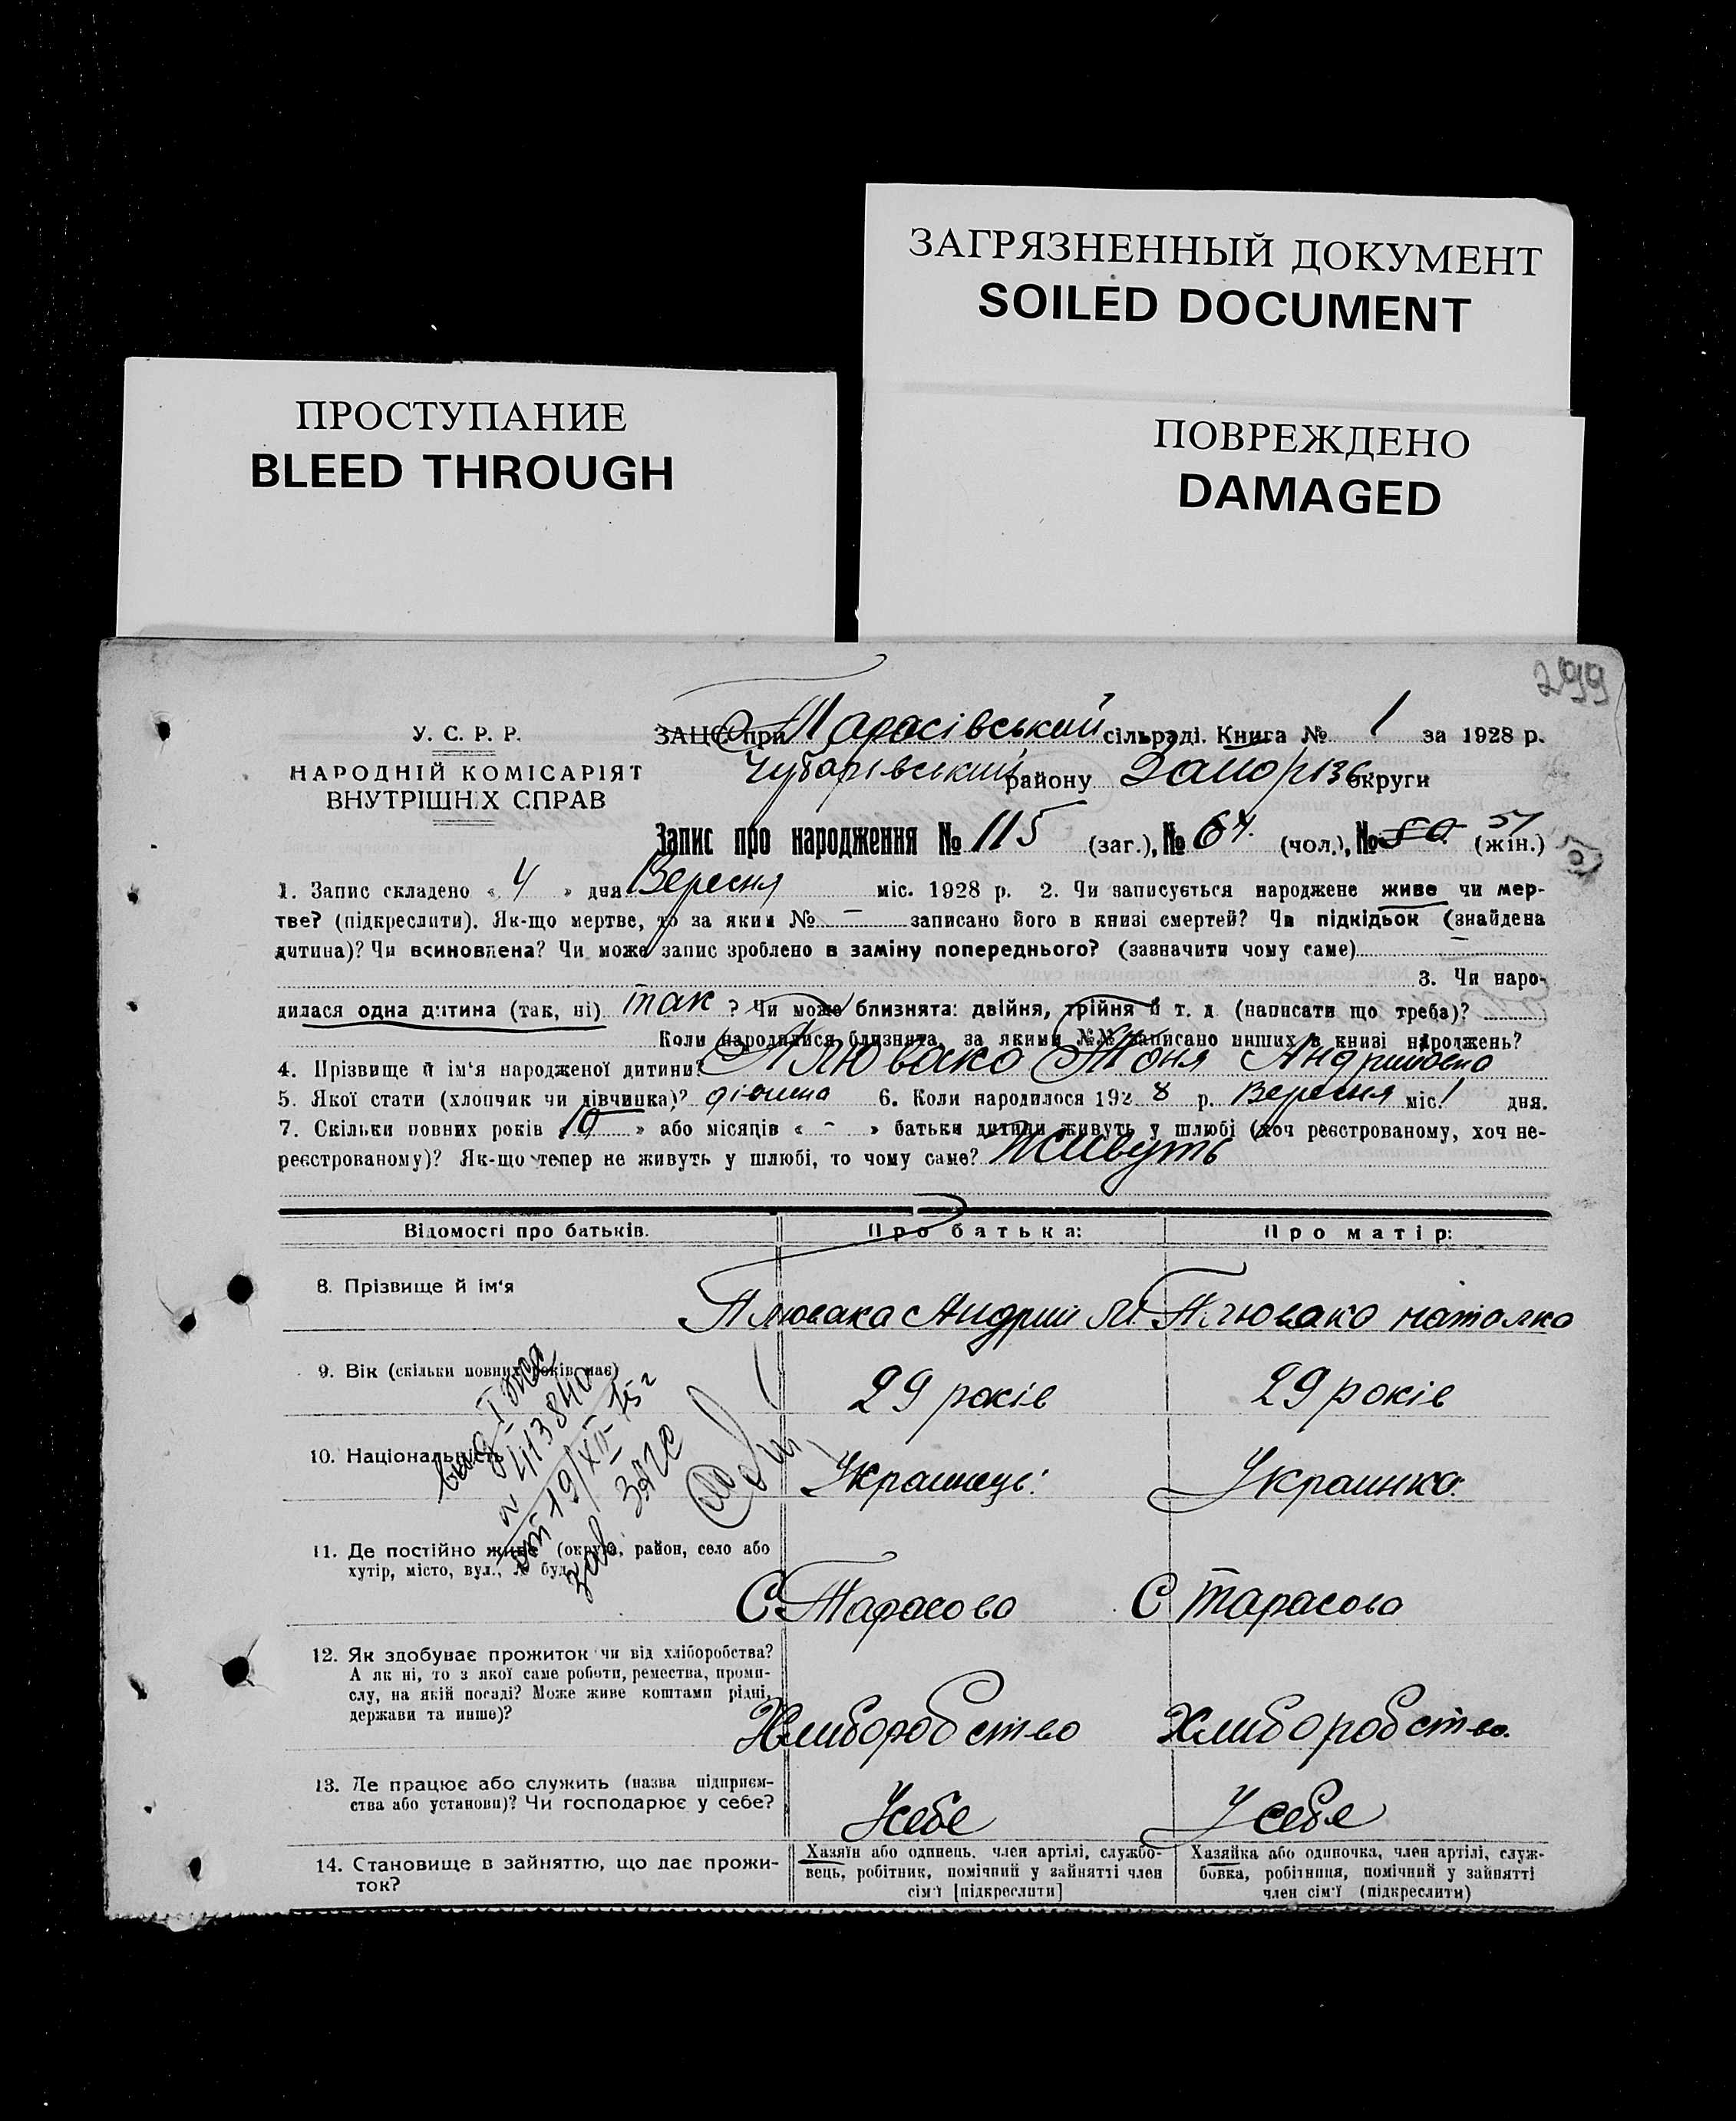 ЗАГРЯЗНЕННЫЙ ДОКУМЕНТ
SOILED DOCUMENT
ПРОСТУПАНИЕ
BLEED THROUGH
ПОВРЕЖДЕНО
DAMAGED
299
У. С. Р. Р.
НАРОДНІЙ КОМІСАРІЯТ
ВНУТРІШНІХ СПРАВ
ЗАЦС при Тарасівський сільраді. Книга № 1 за 1928 р.
Чубарівський району Запоріз округи
Запис про народження № 115 (заг.), № 64. (чол.), № 50 51 (жін.)
1. Запис складено « 4 » дня Вересня міс. 1928 р. 2. Чи записується народжене живе чи мер-
тве? (підкреслити). Як-що мертве, то за яким № — записано його в книзі смертей? Чи підкідьок (знайдена
дитина)? Чи всиновлена? Чи може запис зроблено в заміну попереднього? (зазначити чому саме) —
3. Чи наро-
дилася одна дитина (так, ні) так ? Чи може близнята: двійня, трійня й т. д. (написати що треба)?
Коли народилися близнята, за якими №№ записано инших в книзі народжень?
4. Прізвище й ім'я народженої дитини? Плювако Тоня Андриивна
5. Якої статі (хлопчик чи дівчинка)? дівчина 6. Коли народилося 1928 р. Вересня міс. 1 дня.
7. Скільки повних років « 10 » або місяців « - » батьки дитини живуть у шлюбі (хоч реєстрованому, хоч не-
реєстрованому)? Як-що тепер не живуть у шлюбі, то чому саме? Живуть
Відомості про батьків. Про батька: Про матір:
8. Прізвище й ім'я Плювака Андрий М. Плювако Наталка
9. Вік (скільки повних років має) 29 років 29 років
10. Національність Украинець Украинка.
11. Де постійно живе (округа, район, село або
хутір, місто, вул., № буд.
С Тарасова С Тарасова
12. Як здобуває прожиток чи від хліборобства?
А як ні, то з якої саме роботи, ремества, проми-
слу, на якій посаді? Може живе коштами рідні,
держави та инше)?
Хлиборобство Хлиборобство.
13. Де працює або служить (назва підприєм-
ства або установи)? Чи господарює у себе?
У себе У себе
14. Становище в зайняттю, що дає прожи-
ток?
Хазяїн або одинець, член артілі, службо-
вець, робітник, помічний у зайнятті член
сім'ї [підкреслити]
Хазяйка або одиночка, член артілі, служ-
бовка, робітниця, помічний у зайнятті
член сім'ї (підкреслити)